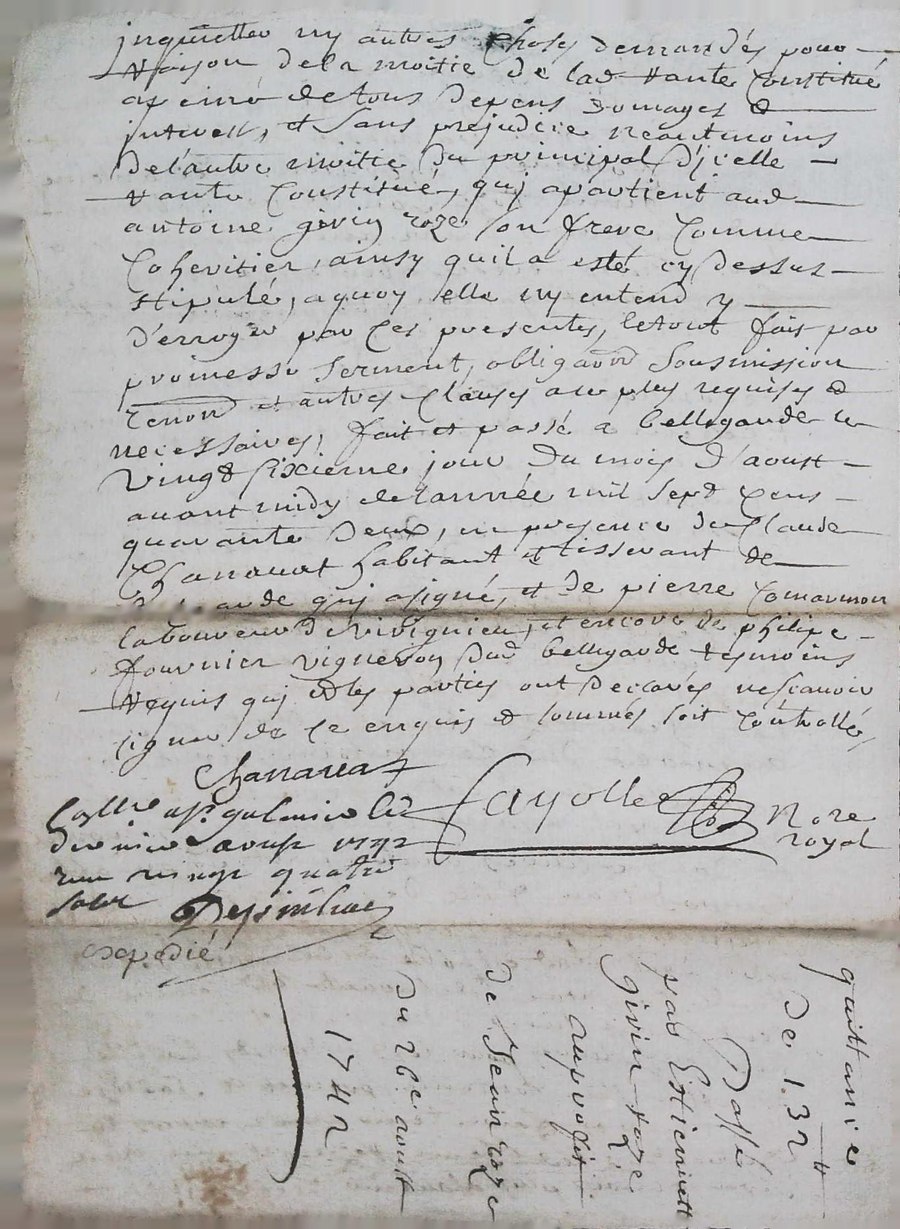 jnquietter ny autres choses demandés pour
raison dela moitié de lad rante Constitué
apeine detous depens domages &
jnterest, et sans prejudice neantmoins
del'autre moitié du principal d'jcelle
rante Constitué, quj apartient aud
antoine givin roze son frere Comme
Coheritier, ainsy quil a esté cy dessus
stipulé, aquoy elle ny entend y
d'erroger par Ces presentes, letout fait par
promesse serment, obligaon soumission
renon et autres Clauses au plus requises &
necessaires, fait et passé a bellegarde le
vingt sixieme jour du mois d'aoust
avant midy de lannée mil sept Cens
quarante deux, en presence de Claude
Chanavat habitant et tisserant de
quj a signé, et de pierre
laboureur de rivignieu, et encore de philipe
fournier vigneron dud bellegarde tesmoins
requis quj & les parties ont declarés nescavoir
signer de Ce enquis & sommés soit Controllé,
Chanavat
Fayolle Nore
royal
Contlle a st galmier le
dernier aoust 1742
reçu vingt quatre
solz
expedié
quittance
De 132 #
Passé
par Estiennett
givin roze
auprofit
de Jean roze
du 26e aoust
1742